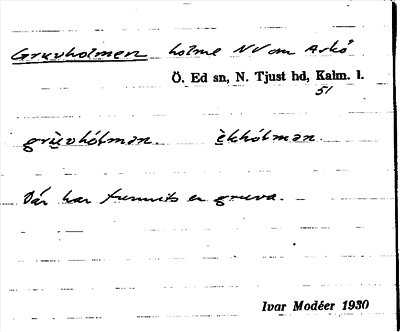 Gruvholmen holme NV om Askö
Ö. Ed sn, N. Tjust hd, Kalm. l.
51
grùvhólmən. èkhólmən.
Där har funnits en gruva.
Ivar Modéer 1930